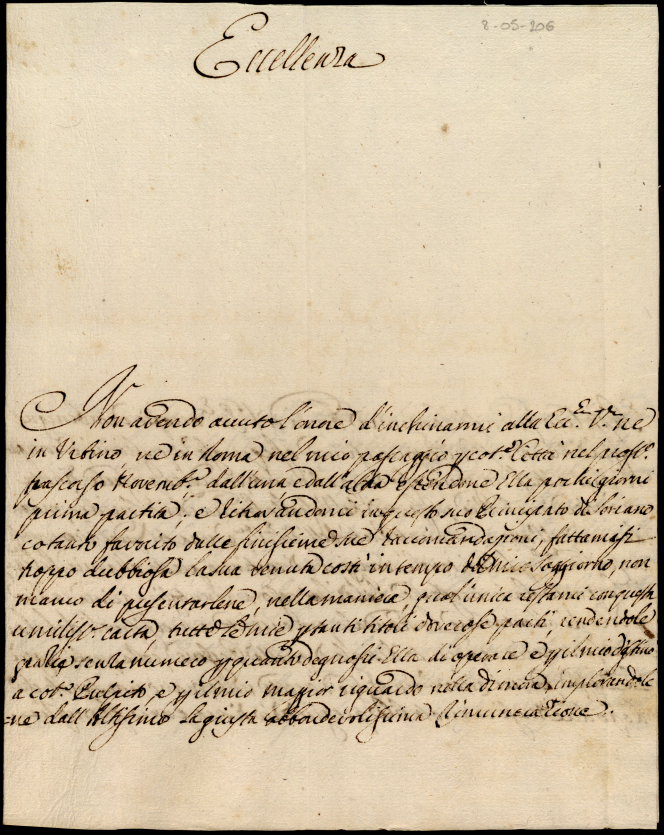 2-05-206
Eccellenza
Non avendo avuto l'onore d'inchinarmi alla Ecc.ª V.ª ne
in Urbino ne in Roma nel mio passaggio p cot.ª Città nel pross.º
trascorso Novemb.e dall'una e dall'altra essendone Ella pochi giorni
prima partita; e ritrovandomi in questo suo Principato di Soriano
cotanto favorito dalle finissime sue raccomandazioni, fattamisi
troppo dubbiosa la sua venuta costì in tempo di mio soggiorno, non
manco di presentarlene, nella maniera, qual'unica restami con questa
umiliss.ª carta, tutte le mie p tanti titoli doverose parti, rendendole
grazie senza numero p quanto degnossi Ella di operare e p il mio destino
a cot.º Pulpito, e p il mio maggior riguardo nella dimora, Implorandole
=ne dall'Altissimo la giusta abbondevolissima rimunerazione.